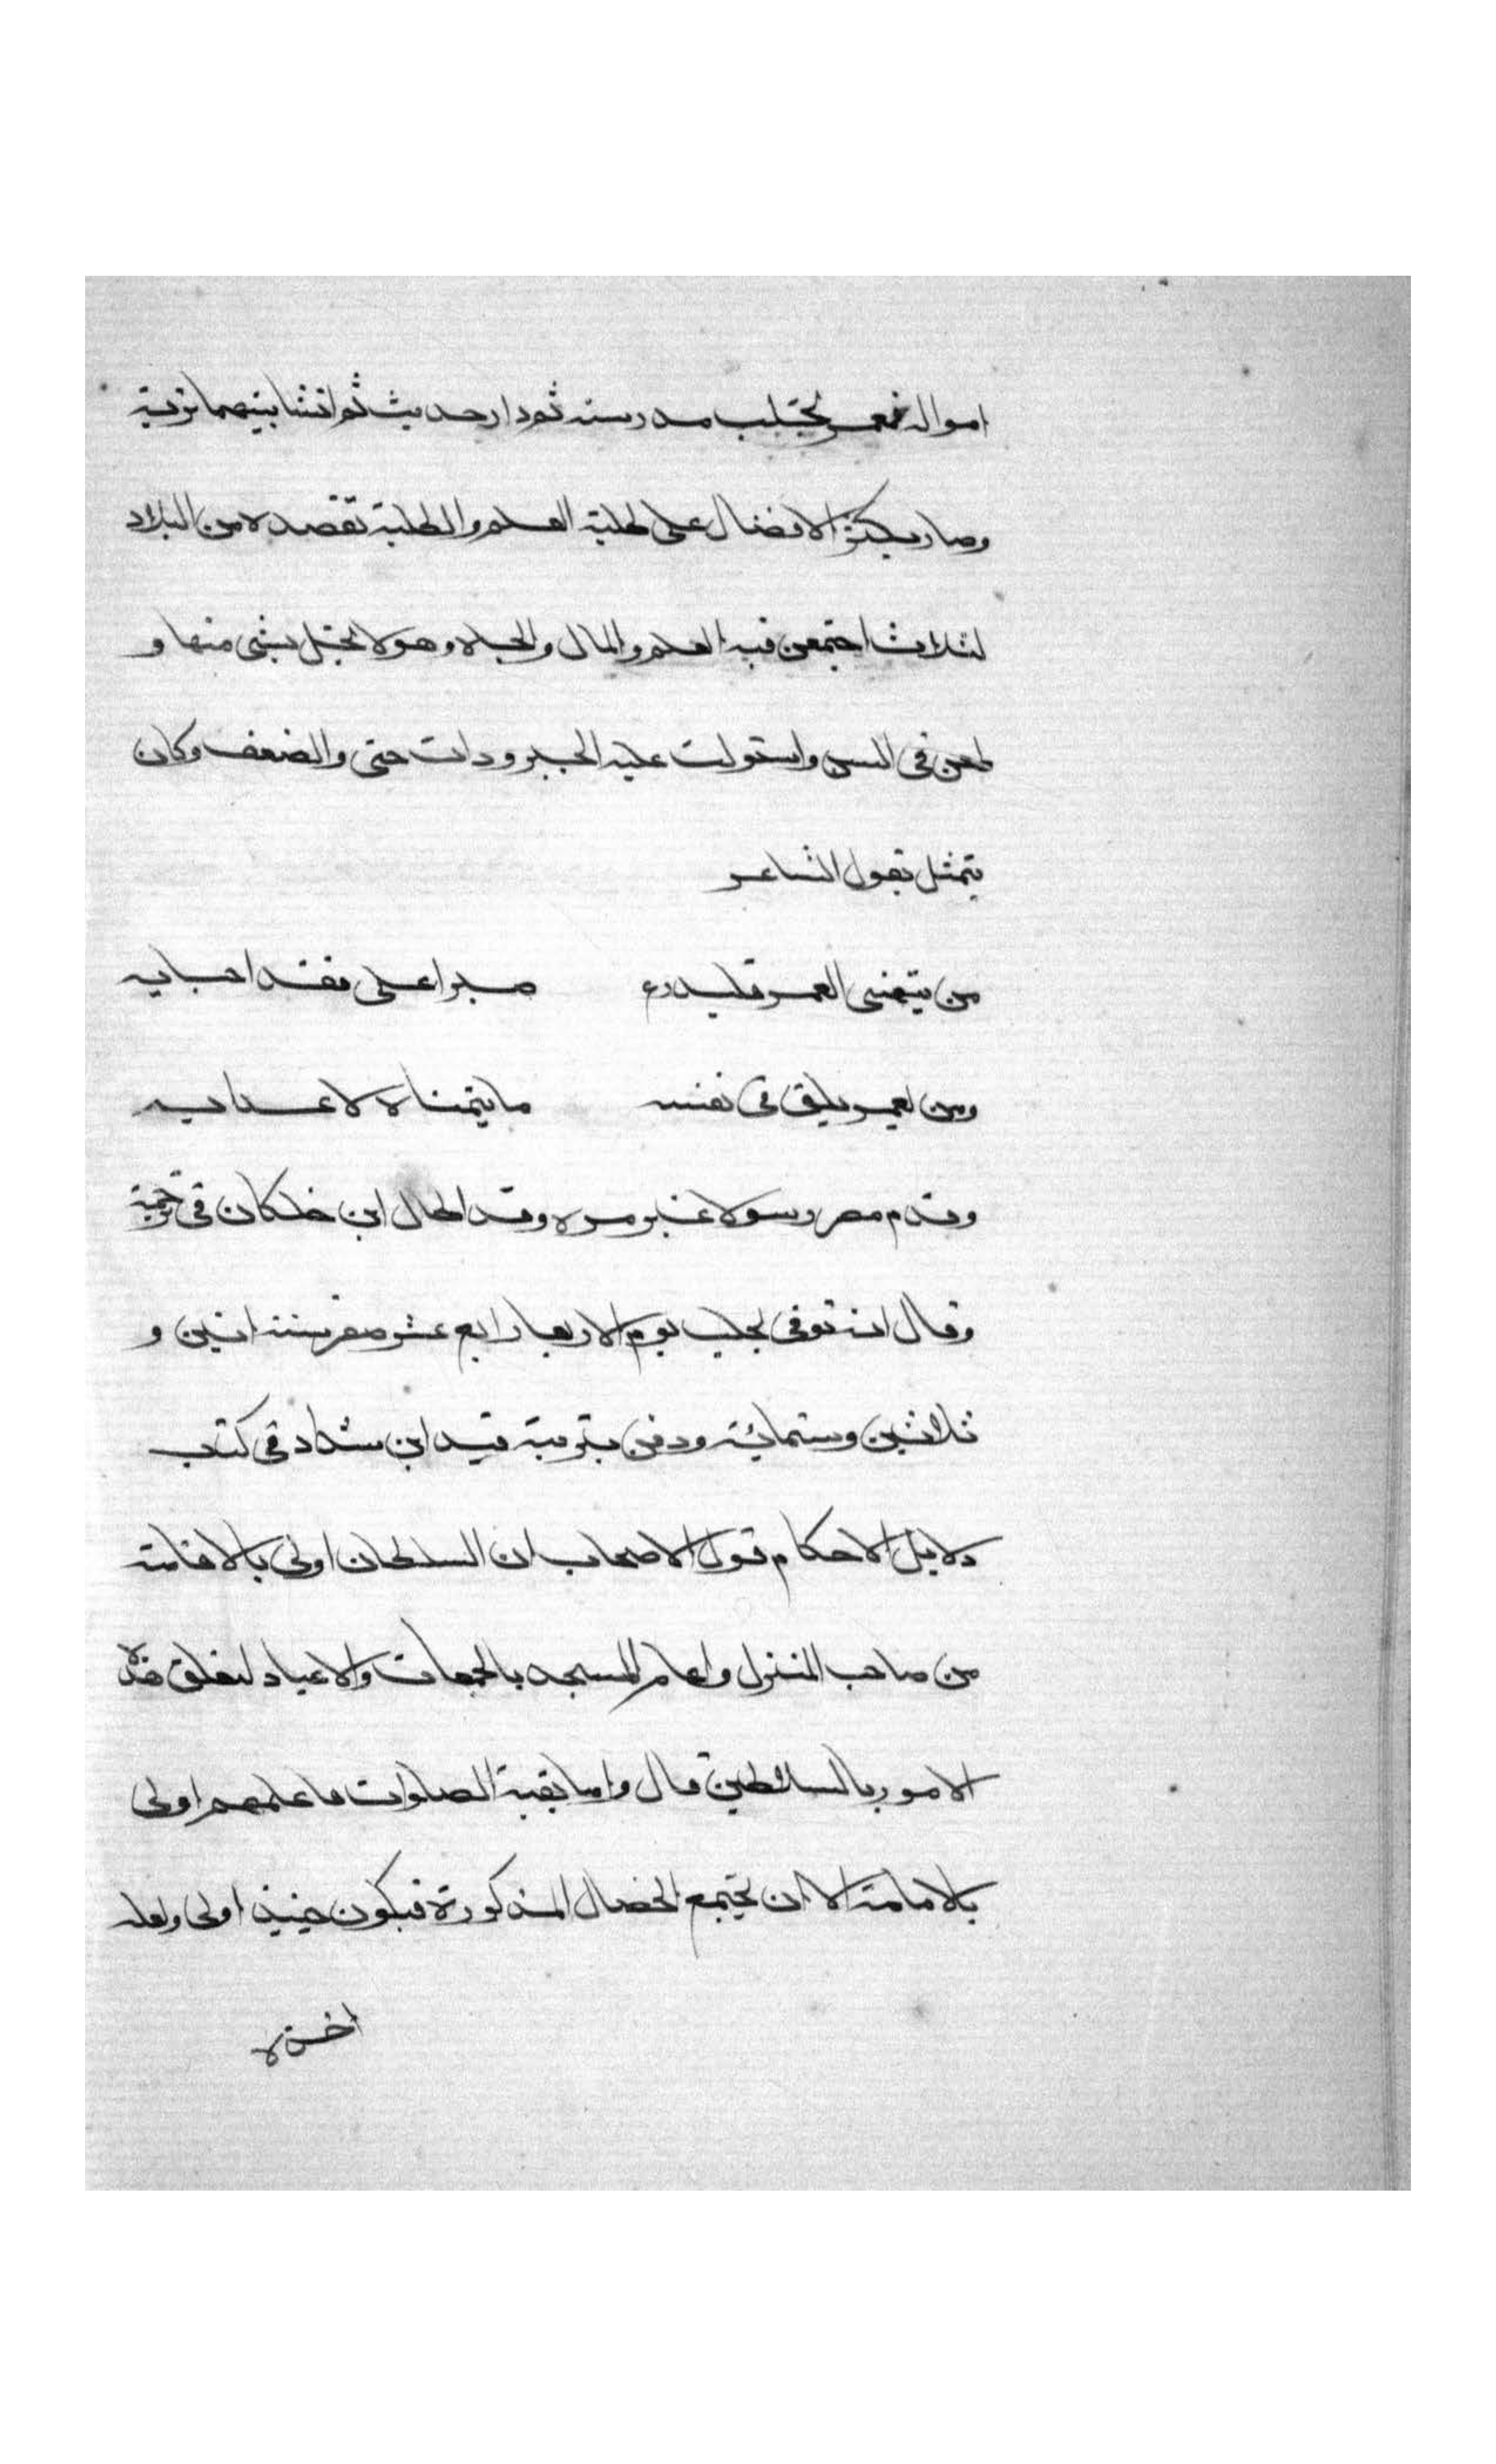 امواله فعمر بحلب مدرسة ثم دار حديث ثم انشا بينهما تربة
وصار يكثر الافضال على طلبة العلم والطلبة تقصده من البلاد
لثلاث اجتمعن فيه العلم والمال والجاه وهو لا يبخل بشى منها و
طعن في السن واستولت عليه البرودات حتى والضعف وكان
يتمثل بقول الشاعر
من يتمنى العمر فليدرع صبرا على فقد احبايه
ومن يعمر يلق في نفسه ما يتمناه لاعدايه
وقدم مصر رسولا غير مره وقد اطال ابن خلكان في ترجمته
وقال انه توفى بحلب يوم الاربعا رابع عشر صفر سنة اثنين و
ثلاثين وستمائة ودفن بتربة قيد ابن شداد في كتاب
دلايل الاحكام قول الاصحاب ان السلطان اولى بالاقامة
من صاحب المنزل وامام المسجد بالجمعات والاعياد لتعلق هذه
الامور بالسلاطين قال واما بقية الصلوات فاعلمهم اولى
بالامامة الا ان تجتمع الخصال المذكورة فيكون حينيذ اولى ولعله